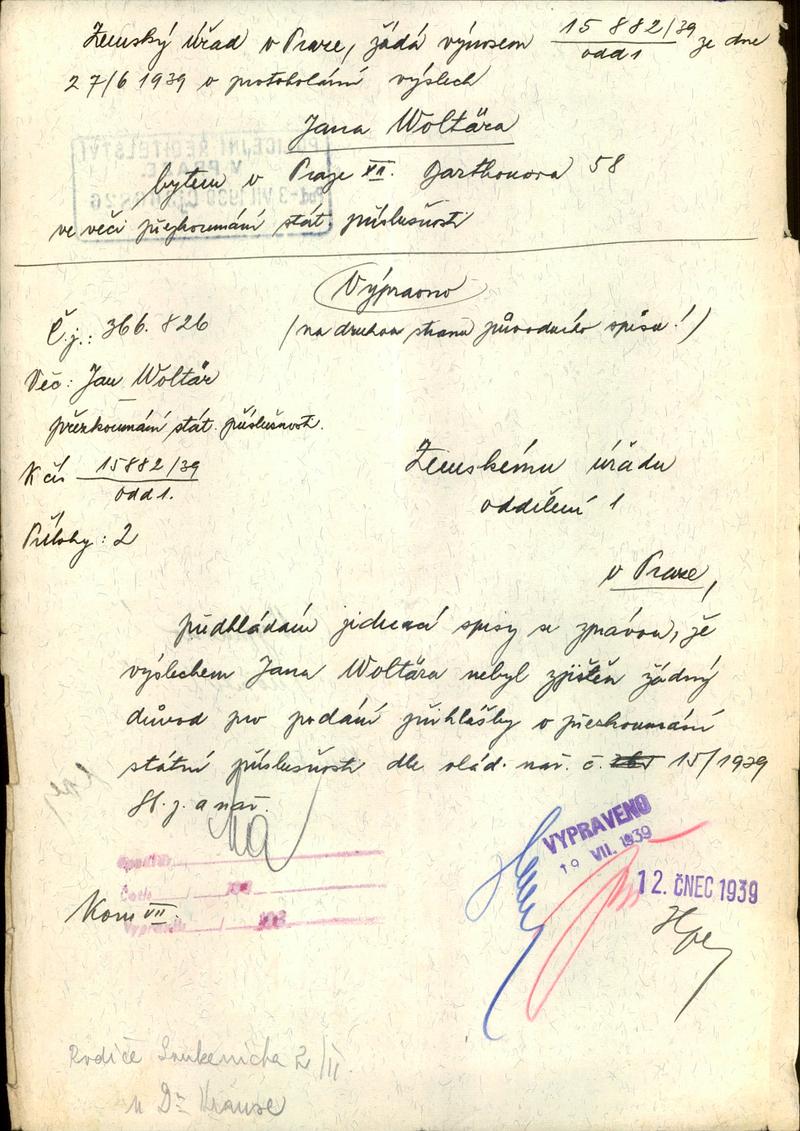 Zemský úřad v Praze, žádá výnosem 15 882/39 odd 1 ze dne
27/6 1939 o protokolární výslech
Jana Woltära
bytem v Praze XII.  58
ve věci přezkoumání stát. příslušnosti
POLICEJNÍ ŘEDITELSTVÍ
V PRAZE
Vypraveno
Č.j.: 366.826
(na druhou stranu původního spisu!)
Věc: Jan Woltär
přezkoumání stát. příslušnosti.
K čís 15882/39 odd 1.
Zemskému úřadu
oddělení 1
Přílohy: 2
v Praze,
předkládám jednací spisy se zprávou, že
výslechem Jana Woltära nebyl zjištěn žádný
důvod pro podání přihlášky o přezkoumání
státní příslušnosti dle vlád. nař. č. 15/1939
Sb. z. a nař.
VYPRAVENO
19 VII. 1939
12. ČNEC 1939
Kom VII.
Rodiče Soukenická 2/II
u Dr Krause